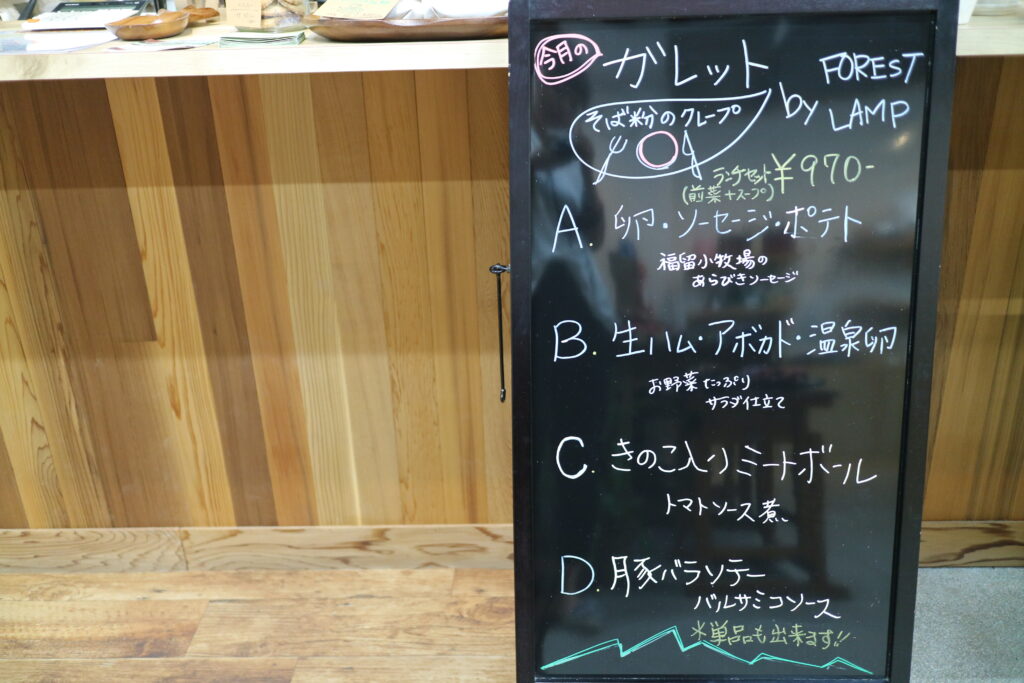 今月の
ガレット
by FOREST LAMP
そば粉のクレープ
ランチセット ¥970-
(前菜+スープ)
A. 卵・ソーセージ・ポテト
福留小牧場の
あらびきソーセージ
B. 生ハム・アボカド・温泉卵
お野菜たっぷり
サラダ仕立て
C. きのこ入りミートボール
トマトソース煮
D. 豚バラソテー
バルサミコソース
※単品も出来ます!!